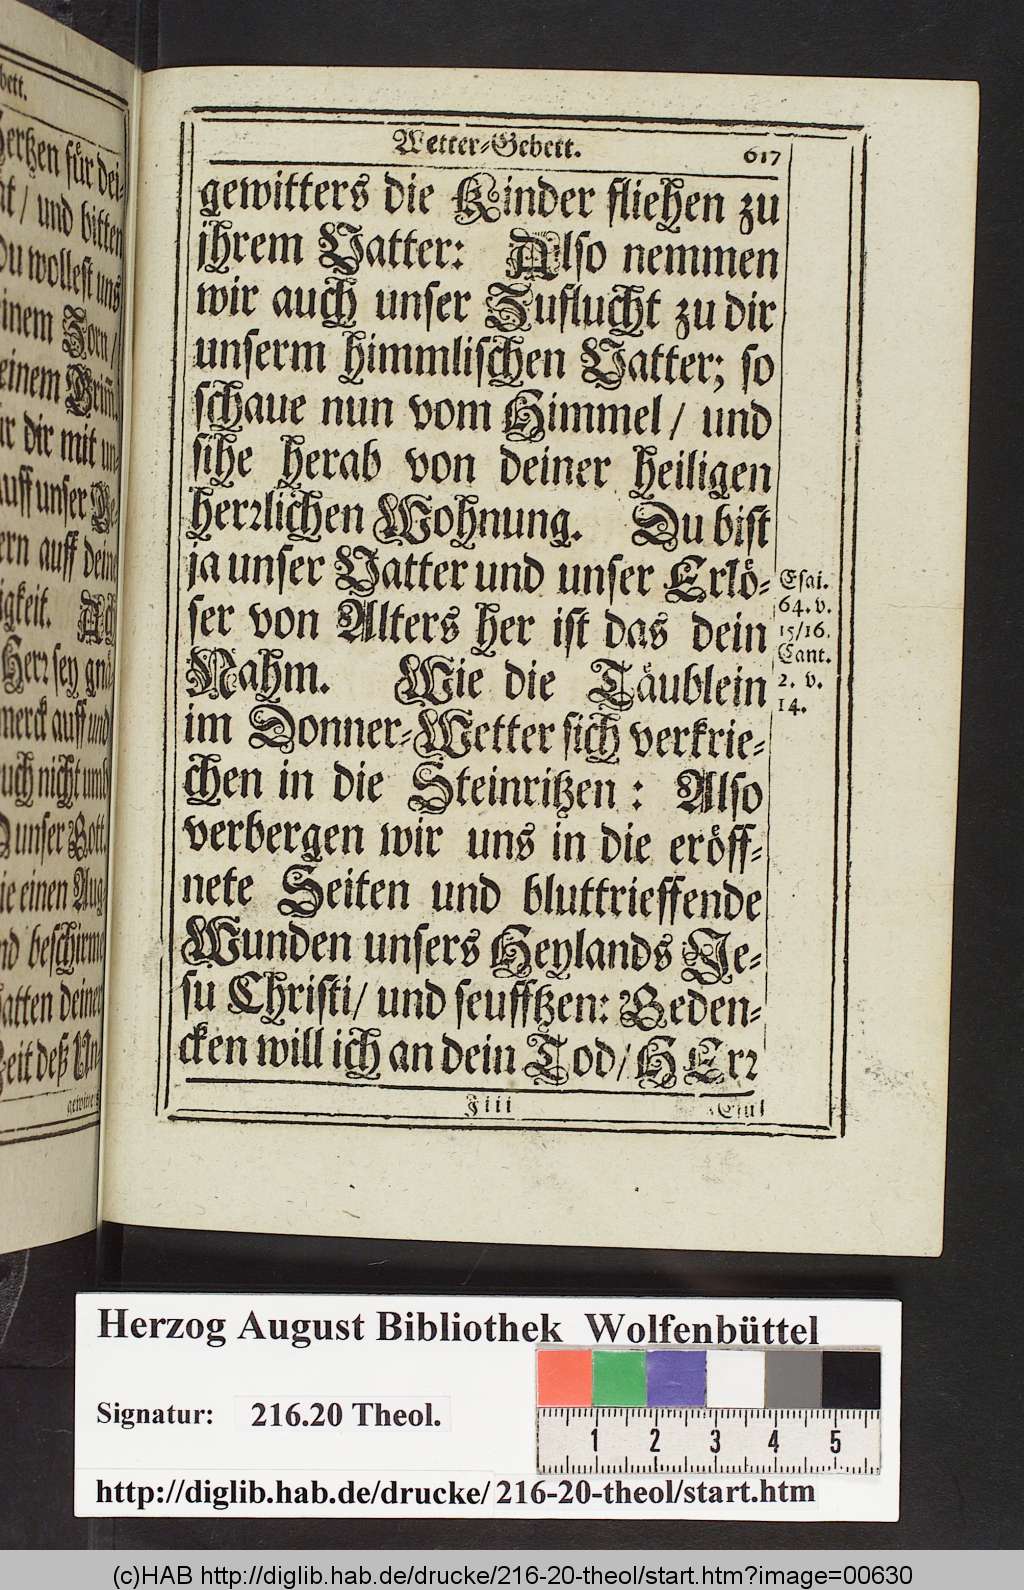 bett.
Hertzen für dei-
und bitten
Du wollest uns
deinem Zorn /
deinem Grimm
dir mit un-
auff unser Ge-
auff deine
Ach
Herr sey gnä-
merck auff und
nicht umb
O unser Gott
einen Aug-
beschirme
deiner
Zeit deß Un-
gewitte
Wetter-Gebett. 617
gewitters die Kinder fliehen zu
jhrem Vatter: Also nemmen
wir auch unser Zuflucht zu dir
unserm himmlischen Vatter; so
schaue nun vom Himmel / und
sihe herab von deiner heiligen
herrlichen Wohnung. Du bist
ja unser Vatter und unser Erlö-
ser von Alters her ist das dein
Nahm. Wie die Täublein
im Donner-Wetter sich verkrie-
chen in die Steinritzen : Also
verbergen wir uns in die eröff-
nete Seiten und bluttrieffende
Wunden unsers Heylands Je-
su Christi / und seufftzen: Geden-
cken will ich an dein Tod / HErr
Esai.
64. v.
15/16.
Cant.
2. v.
14.
Jiii
Herzog August Bibliothek Wolfenbüttel
Signatur: 216.20 Theol.
1 2 3 4 5
http://diglib.hab.de/drucke/216-20-theol/start.htm
(c)HAB http://diglib.hab.de/drucke/216-20-theol/start.htm?image=00630